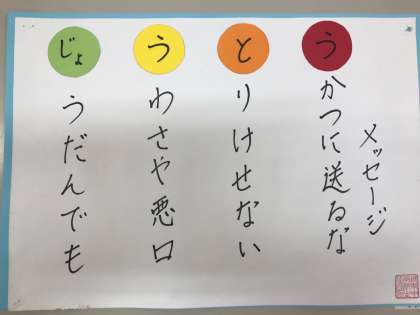 うかつに送るな
メッセージ
とりけせない
うわさや悪口
じょうだんでも